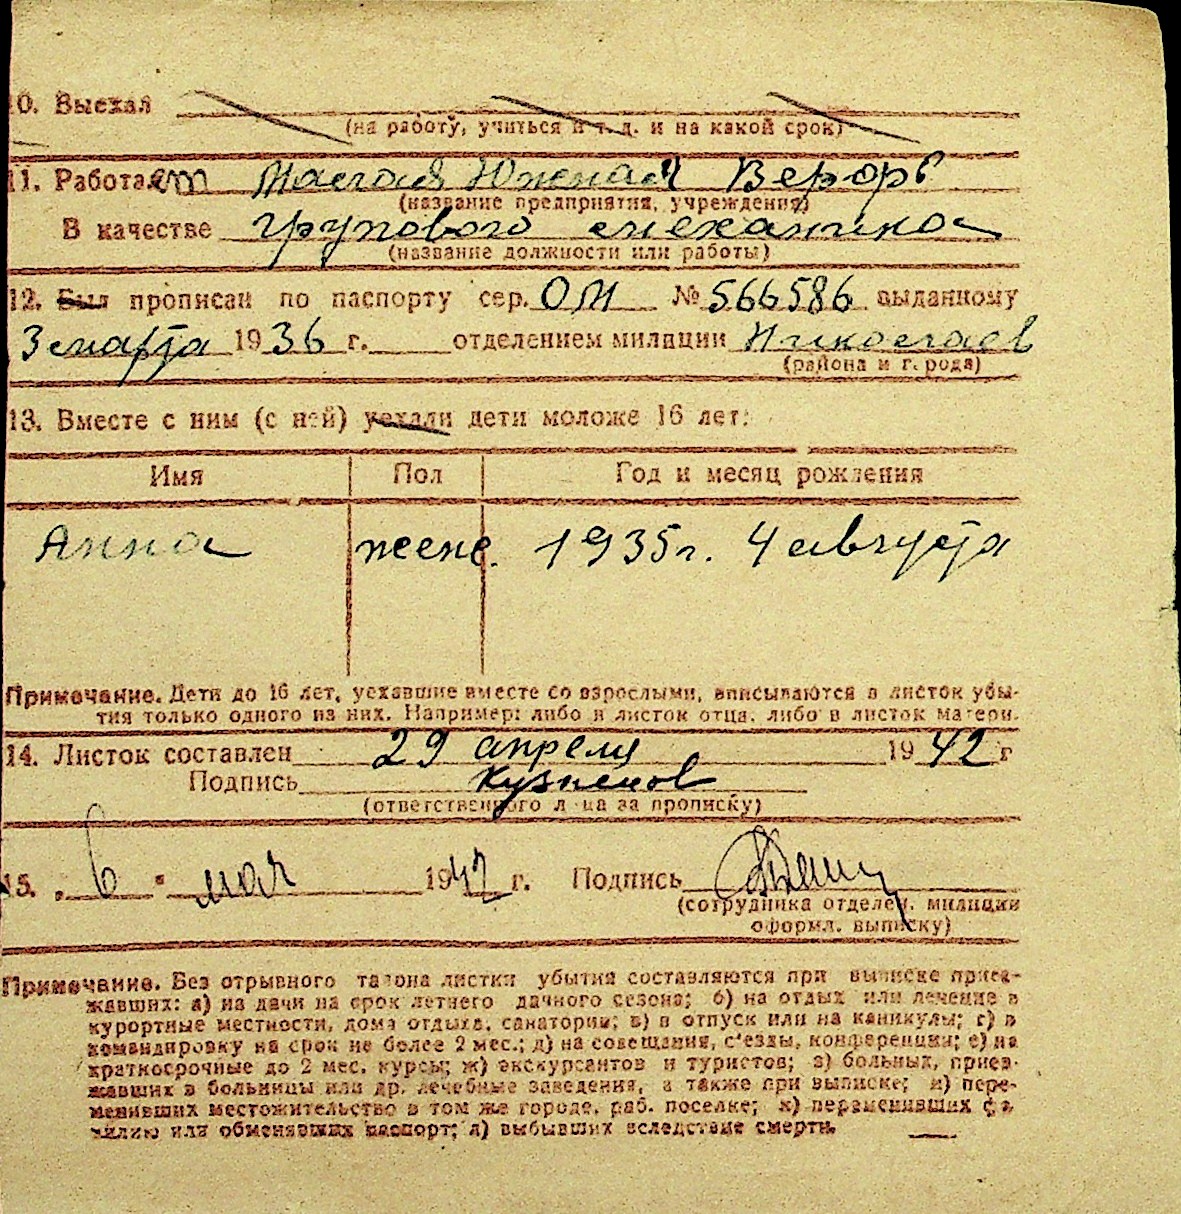 10. Выехал
(на работу, учиться и т. д. и на какой срок)
11. Работает Малая Южная Верфь
(название предприятия, учреждения)
В качестве групового механика
(название должности или работы)
12. Был прописан по паспорту сер. ОМ № 566586 выданному
3 марта 1936 г. отделением милиции Николаев
(района и города)
13. Вместе с ним (с ней) уехали дети моложе 16 лет:
Имя Пол Год и месяц рождения
Анна женс. 1935 г. 4 августа
Примечание. Дети до 16 лет, уехавшие вместе со взрослыми, вписываются в листок убы-
тия только одного из них. Например: либо в листок отца, либо в листок матери.
14. Листок составлен 29 апреля 1942 г
Подпись
(ответственного лица за прописку)
15. „6" мая 1942 г. Подпись
(сотрудника отделен. милиции
оформл. выписку)
Примечание. Без отрывного талона листки убытия составляются при выписке приез-
жавших: а) на дачи на срок летнего дачного сезона; б) на отдых или лечение в
курортные местности, дома отдыха, санатории; в) в отпуск или на каникулы; г) в
командировку на срок не более 2 мес.; д) на совещания, с'езды, конференции; е) на
краткосрочные до 2 мес. курсы; ж) экскурсантов и туристов; з) больных, приез-
жавших в больницы или др. лечебные заведения, а также при выписке; и) пере-
менивших местожительство в том же городе, раб. поселке; к) переменивших фа-
милию или обменявших паспорт; л) выбывших вследствие смерти.